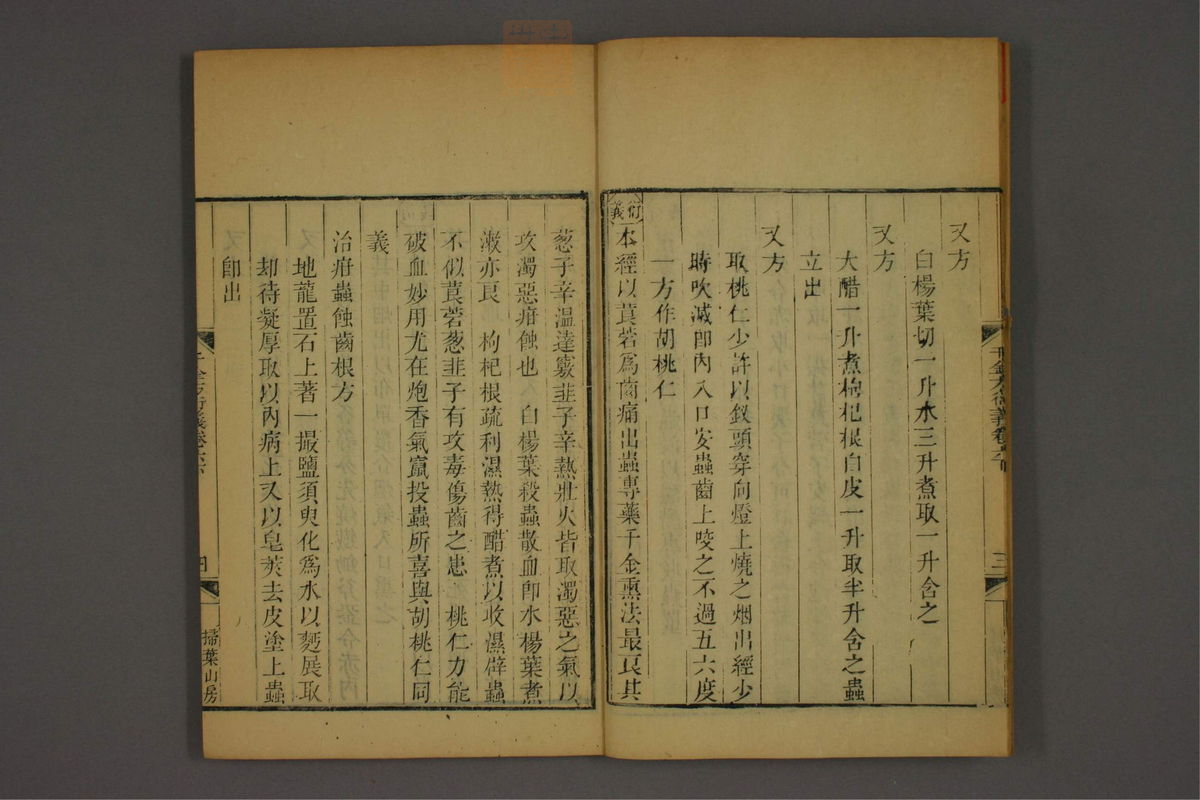 又方
白楊葉切一升水三升煮取一升含之
又方
大醋一升煮枸杞根白皮一升取半升含之蟲
立出
又方
取桃仁少許以釵頭穿向燈上燒之烟出經少
時吹滅卽內入口安蟲齒上咬之不過五六度
一方作胡桃仁
衍義
本經以莨菪爲齒痛出蟲專藥千金熏法最良其
千金方衍義卷六下
三
葱子辛溫達竅韭子辛熱壯火皆取濁惡之氣以
攻濁惡疳蝕也　白楊葉殺蟲散血卽水楊葉煮
漱亦良　枸杞根疏利濕熱得醋煮以收濕辟蟲
不似莨菪葱韭子有攻毒傷齒之患　桃仁力能
破血妙用尤在炮香氣竄投蟲所喜與胡桃仁同
義
治疳蟲蝕齒根方
地龍置石上著一撮鹽須臾化爲水以麪展取
却待凝厚取以內病上又以皂莢去皮塗上蟲
卽出
千金方衍義卷六下
四
掃葉山房